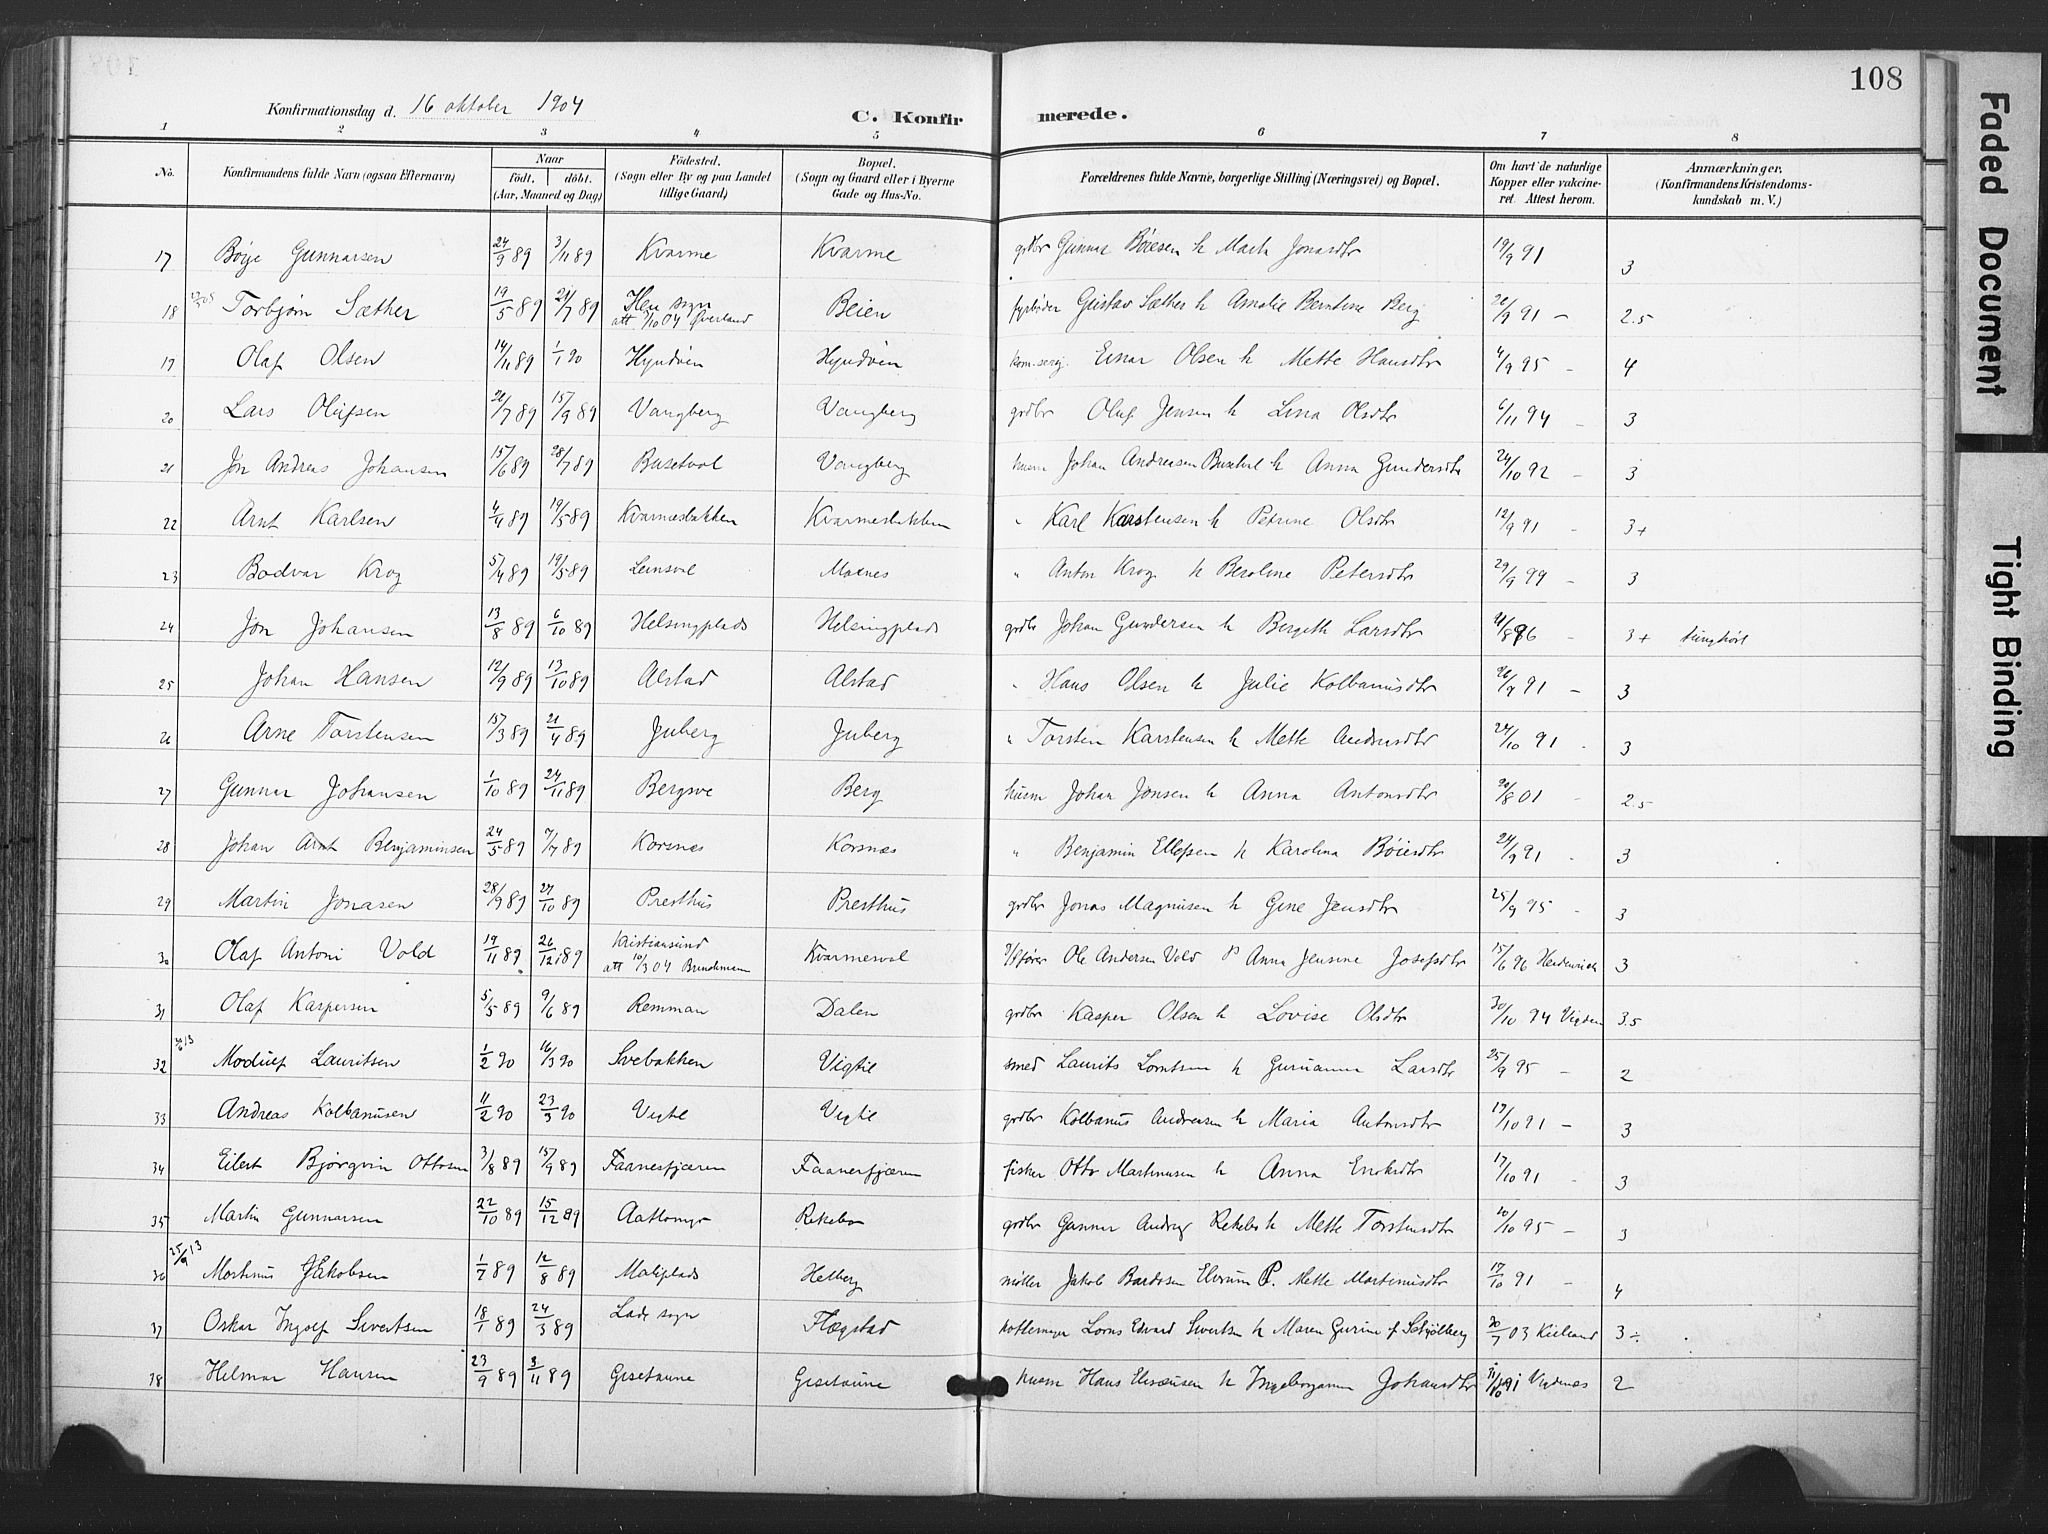 108
Konfirmationsdag d. 16 oktober 1904
C. Konfirmerede.
1 2 3 4 5 6 7 8
No. Konfirmandens fulde Navn (ogsaa Efternavn) Naar födt. döbt. (Aar, Maaned og Dag) Födested. (Sogn eller By og paa Landet tillige Gaard) Bopæl. (Sogn og Gaard eller i Byerne Gade og Hus-No. Forældrenes fulde Navne, borgerlige Stilling (Næringsvei) og Bopæl. Om havt de naturlige Kopper eller vakcineret. Attest herom. Anmærkninger. (Konfirmandens Kristendomskundskab m. V.)
17 Börje Gunnarsen 24/9 89 3/11 89 Kvarme Kvarme grdbr Gunnar Böiesen h Marth Jonasdtr 19/9 91 3
18 Torbjørn Sæther 19/5 89 21/7 89 Hen sogn att 7/10 04 Øverland Beien fyrbøder Gustav Sæther h Amalie Berntine Berg 26/9 91 – 2.5
19 Olaf Olsen 14/11 89 1/1 90 Hyndöen Hyndöen Einar Olsen h Mette Hansdtr 4/9 95 – 4
20 Lars Olufsen 21/7 89 15/9 89 Vangberg Vangberg grdbr Oluf Jensen h Lina Olsdtr 6/11 94 – 3
21 Jon Andreas Johansen 15/6 89 28/7 89 Busetvol Vangberg husm Johan Andreasen h Anna Gundersdtr 24/10 92 – 3
22 Arnt Karlsen 4/4 89 19/5 89 Kvarmesbakken Kvarmesbakken " Karl Karstensen h Petrine Olsdtr 12/9 91 – 3+
23 Bodvar Krog 5/4 89 19/5 89 Leinsvol Moknes " Anton Krog h Beroline Petersdtr 29/9 99 – 3
24 Jon Johansen 13/8 89 6/10 89 Helsingplads Helsingplads grdbr Johan Gundersen h Bergeth Larsdtr – 3+ tunghört
25 Johan Hansen 12/9 89 13/10 89 Alstad Alstad " Hans Olsen h Julie Kolbanusdtr 26/7 91 – 3
26 Arne Torstensen 15/3 89 21/4 89 Juberg Juberg " Torsten Karstensen h Mette Andreasdtr 24/10 91 - 3
27 Gunnar Johansen 1/10 89 24/11 89 Bergsve Berg husm Johan Jonsen h Anna Antonsdtr 20/8 01 - 2.5
28 Johan Arnt Benjaminsen 24/5 89 7/7 89 Korsnæs Korsnæs " Benjamin Ellefsen h Karolina Bøiesdtr 24/9 91 - 3
29 Martin Jonasen 28/9 89 27/10 89 Presthus Presthus grdbr Jonas Magnusen h Gine Jensdtr 25/9 95 - 3
30 Olaf Antoni Vold 19/11 89 26/12 89 Kristiansund att 10/3 04 Brinchmann Kvarmesvol Ole Andersen Vold P Anna Jensine Josefsdtr 15/6 96 3
31 Olaf Kaspersen 5/5 89 9/6 89 Remman Dalen grdbr Kasper Olsen h Lovise Olsdtr 30/10 94 3.5
32 Modulf Lauritsen 1/2 90 16/3 90 Svebakken Vigtil smed Laurits Lorntsen h Guruanna Larsdtr 25/9 95 – 2
33 Andreas Kolbanusen 11/2 90 23/3 90 Vigtil Vigtil grdbr Kolbanus Andreasen h Maria Antonsdtr 19/10 91 – 3
34 Eilert Björgvin Ottosen 3/8 89 15/9 89 Faanesfjæren Faanesfjæren fisker Otto Martinusen h Anna Enoksdtr 17/10 91 - 3
35 Martin Gunnarsen 22/10 89 15/12 89 Aattomyr Rekebo grdbr Gunnar Andrias Rekebo h Mette Torstensdtr 20/10 95 – 3
36 25/9 13 Martinus Jakobsen 1/7 89 12/8 89 Moliplads Helberg møller Jakob Bardosen Elvrum P. Mette Martinusdtr 17/10 91 – 4
37 Oskar Ingolf Sivertsen 18/1 89 24/3 89 Lade sogn Flægstad Lorns Edvard Sivertsen h Maren Gurine f Schjölberg 30/7 03 Kieland 3 ÷
38 Helmar Hansen 23/9 89 3/11 89 Gisetaune Gisetaune husm Hans Elisæusen h Ingeboranna Johansdtr 31/10 91 2
Faded Document
Tight Binding